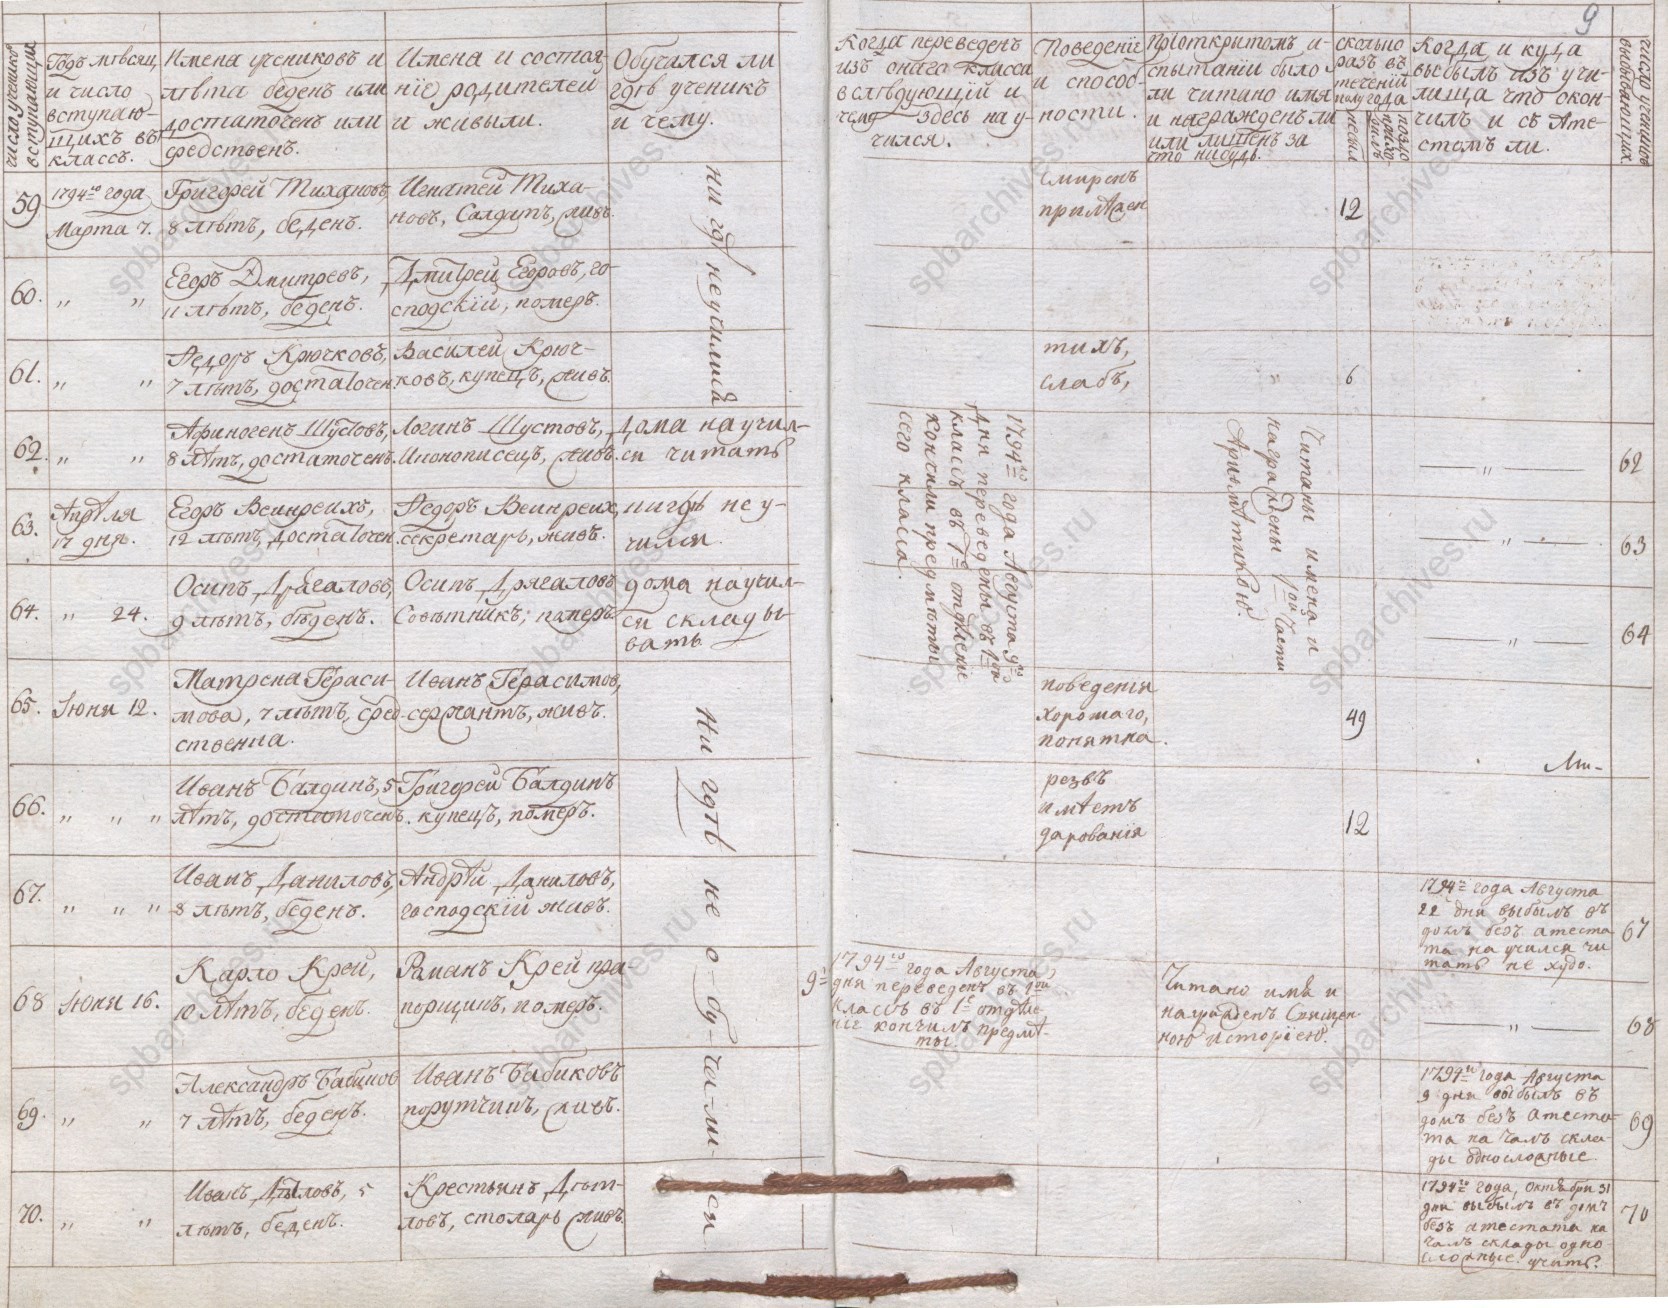 9
число учениковъ вступающихъ
Годъ мѣсяц и число вступающихъ въ классъ.
Имена учениковъ и лѣта беденъ или достаточенъ или средственъ.
Имена и состояніе родителей и живыли.
Обучался ли гдѣ ученикъ и чему.
Когда переведенъ изъ онаго класса вслѣдующій и чему здесь научился.
Поведеніе и способности.
При открытомъ испытаніи было ли читано имя и награжденъ ли или лишенъ за что нибудь.
сколько разъ въ теченій полугода
небыл
поздо приходилъ
Когда и куда выбылъ изъ училища что окончилъ и съ Атестомъ ли.
число учениковъ выбывающихъ
59
1794го года
Марта 7.
Григорей Тихановъ,
8 лѣтъ, беденъ.
Игнатей Тихановъ, Салдатъ, живъ.
ни гдѣ неучились
смиренъ
прилѣжен
12
60.
„ „
Егоръ Дмитревъ,
11 лѣтъ, беденъ.
Дмитрей Егоровъ, господскій, померъ.
61.
„ „
Ѳедоръ Крючковъ,
7 лѣтъ, достаточен.
Василей Крючковъ, купецъ, живъ.
тихъ,
слабъ,
„
6
62.
„ „
Афиногенъ Шустовъ,
8 лѣтъ, достаточенъ.
Логинъ Шустовъ,
Иконописецъ, живъ.
Дома научился читать
1794го года Августа 9го
дня переведены въ 1ой
классъ въ 1е отдѣленіе
кончили предмѣты
сего класса.
Читаны имена и
награждены 1ой части
Ариѳмѣтикою.
„
62
63.
Апрѣля
17 дня.
Егоръ Веинреихъ,
12 лѣтъ, достаточен.
Ѳедоръ Веинреих,
секретарь, живъ.
нигдѣ не учился.
„
63
64.
„ 24.
Осипъ
9 лѣтъ, бѣденъ.
Осипъ
Совѣтникъ, померъ
дома научился складывать
„
64
65.
Іюня 12.
Матрена Герасимова, 7 лѣтъ, средственна.
Иванъ Герасимов,
сержантъ, живъ.
Ни гдѣ не о-бу-ча-ли-сь
поведенія
хорошаго,
понятна.
49
66.
„ „ „
Иванъ Балдинъ, 5
лѣтъ, достаточенъ.
Григорей Балдинъ
купецъ, померъ.
резвъ
имѣетъ
дарованія
12
67.
„ „ „
Иванъ Даниловъ,
8 лѣтъ, беденъ.
Андрѣй Даниловъ,
господскій живъ.
1794го года Августа
22 дня выбылъ въ
домъ безъ атеста
та научился чи
тать не худо.
67
68
Іюня 16.
Карло Крей,
10 лѣтъ, беденъ.
Раманъ Крей прапорщикъ, померъ.
1794го года Августа,
9го дня переведенъ въ 1ой
классъ въ 1е отдѣле-
ніе кончилъ предмѣ-
ты.
Читано имя и
награжденъ Священ
ною Исторіею.
„
68
69.
„ „
Александръ Бабиков
7 лѣтъ, беденъ.
Иванъ Бабиковъ
порутчикъ, живъ.
1794го года Августа
9 дня выбылъ въ
домъ безъ атеста-
та началъ скла-
ды односложные.
69
70.
„ „
Иванъ Дѣтловъ, 5
лѣтъ, беденъ.
Крестьянъ Дѣтловъ, столаръ живъ.
1794го года, Октября 31
дня выбылъ въ домъ
безъ атестата на
чалъ склады одно-
сложные учить.
70
spbarchives.ru